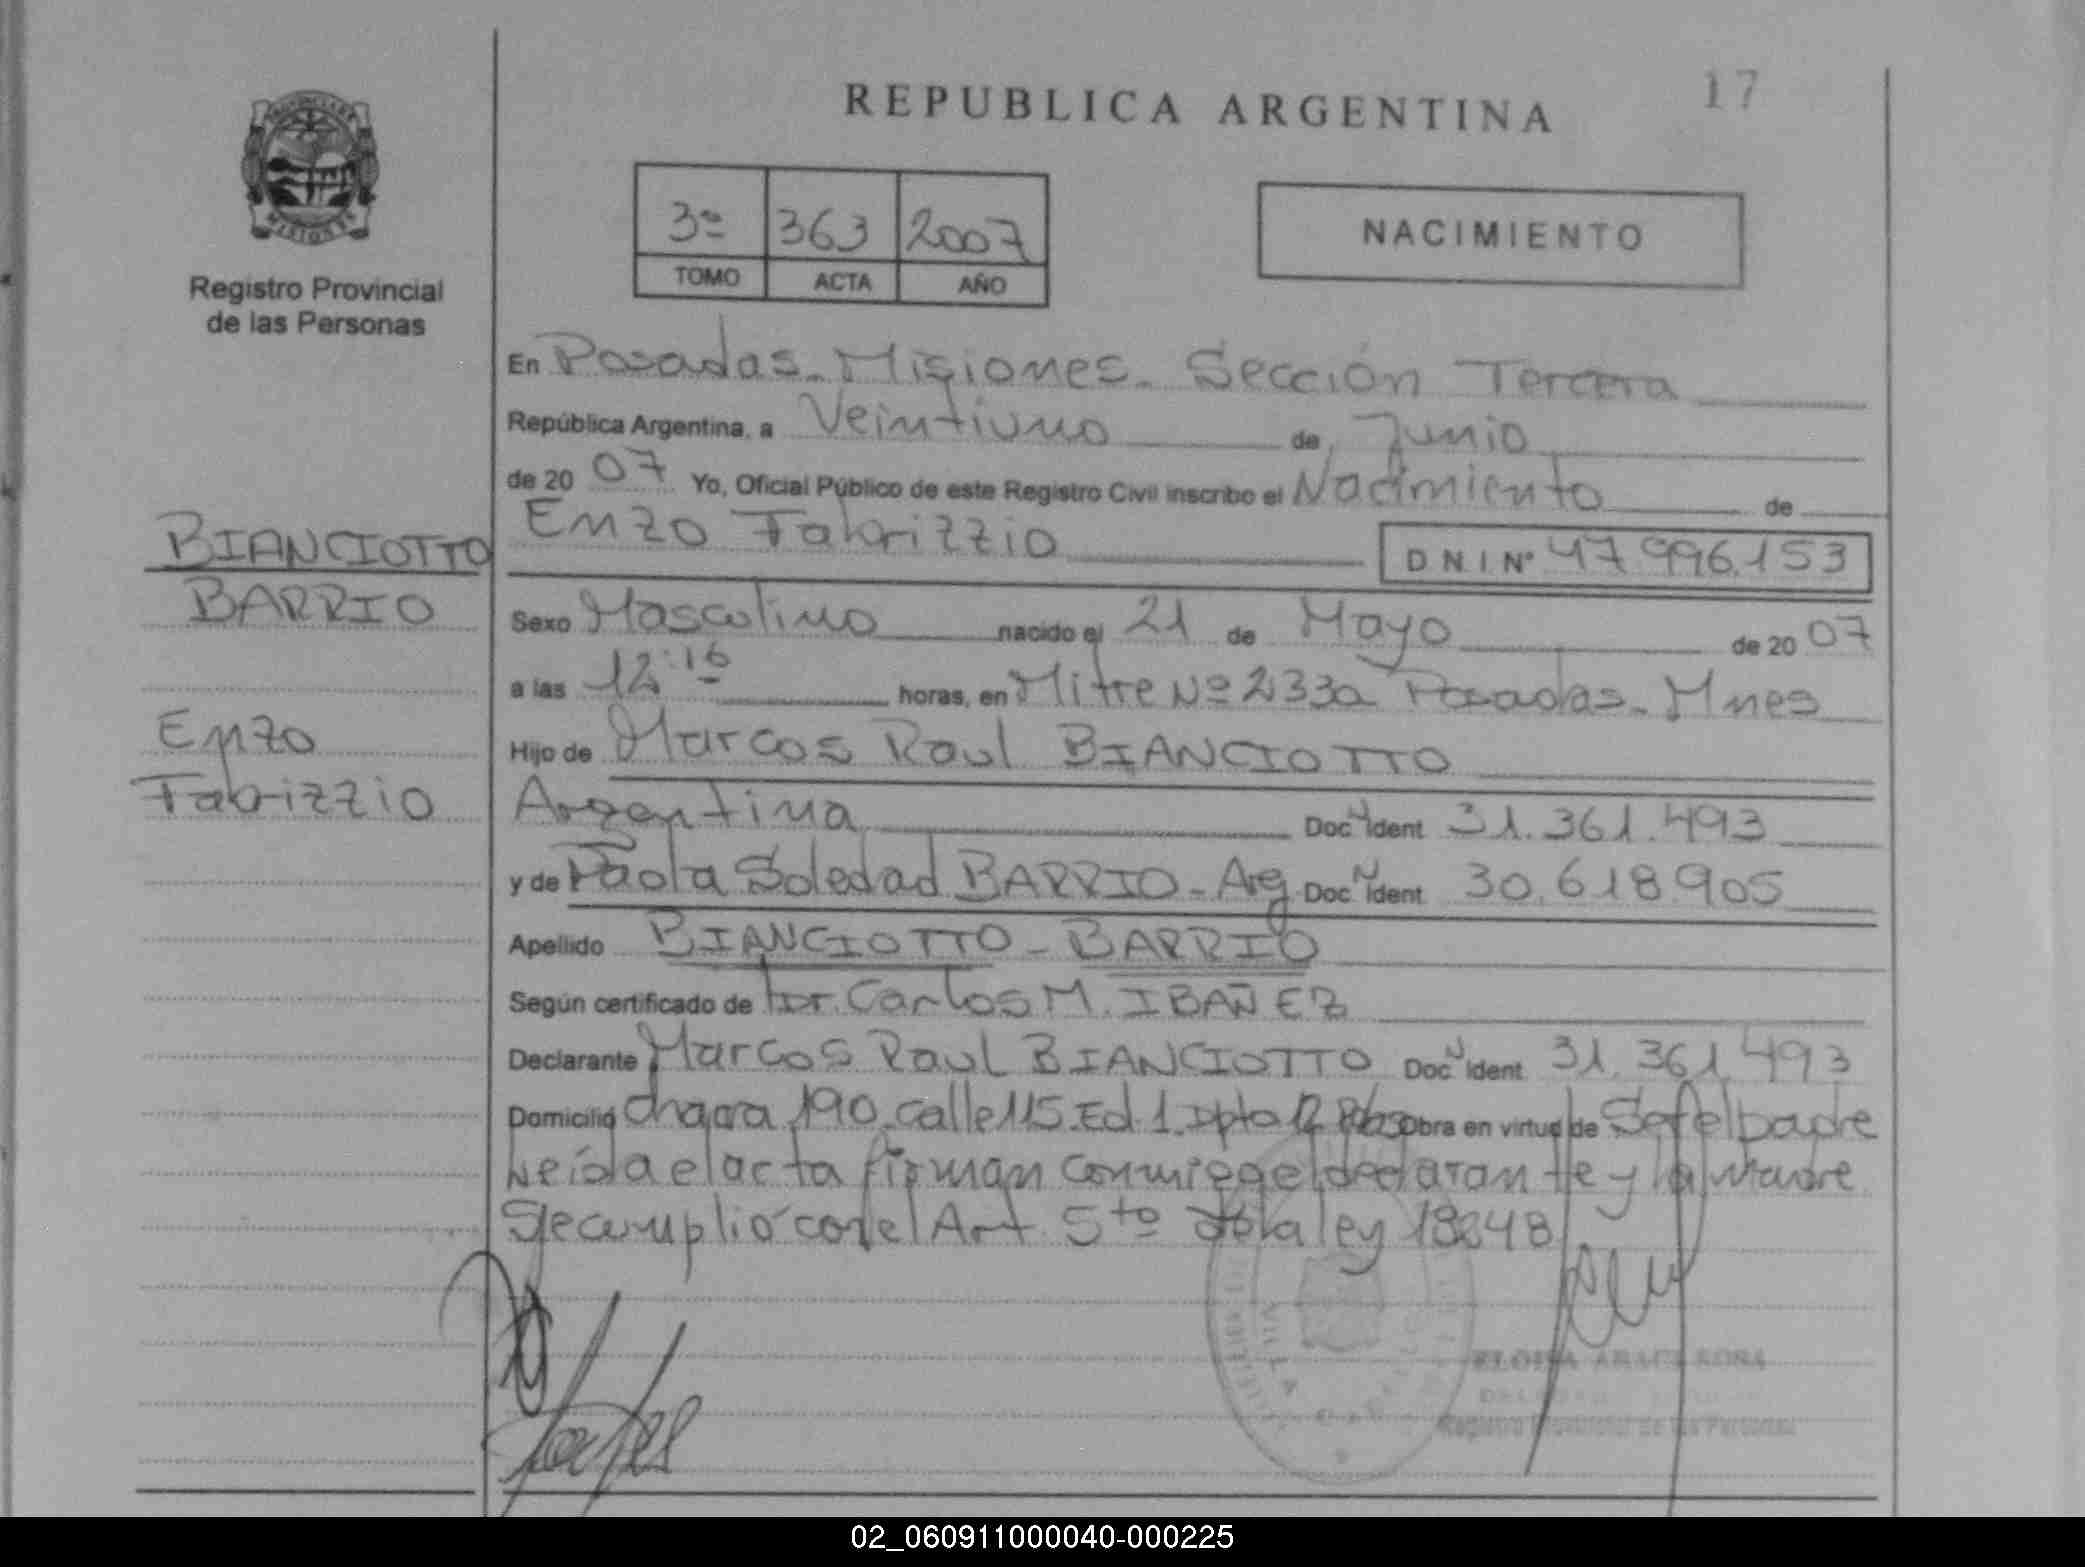 REPUBLICA ARGENTINA
17
Registro Provincial
de las Personas
3º 363 2007
TOMO ACTA AÑO
NACIMIENTO
En Posadas - Misiones - Sección Tercera
República Argentina, a Veintiuno de Junio
de 20 07 Yo, Oficial Público de este Registro Civil inscribo el Nacimiento de
Enzo Fabrizzio
D N I Nº 47.996.153
BIANCIOTTO
BARRIO
Enzo
Fabrizzio
Sexo Masculino nacido el 21 de Mayo de 20 07
a las 12:16 horas, en Mitre Nº 2330 Posadas - Mnes
Hijo de Marcos Raul BIANCIOTTO
Argentina Doc N Ident 31.361.493
y de Paola Soledad BARRIO - Arg Doc N Ident 30.618.905
Apellido BIANCIOTTO - BARRIO
Según certificado de Dr. Carlos M. IBAÑEZ
Declarante Marcos Raul BIANCIOTTO Doc N Ident 31.361.493
Domicilio chacra 190 calle 115 Ed 1 Dpto 12 obra en virtud de Ser el padre
Leída el acta firman conmigo el declarante y la Madre
Se cumplió con el Art 5to de la ley 18248
Registro Provincial de las Personas
02_060911000040-000225